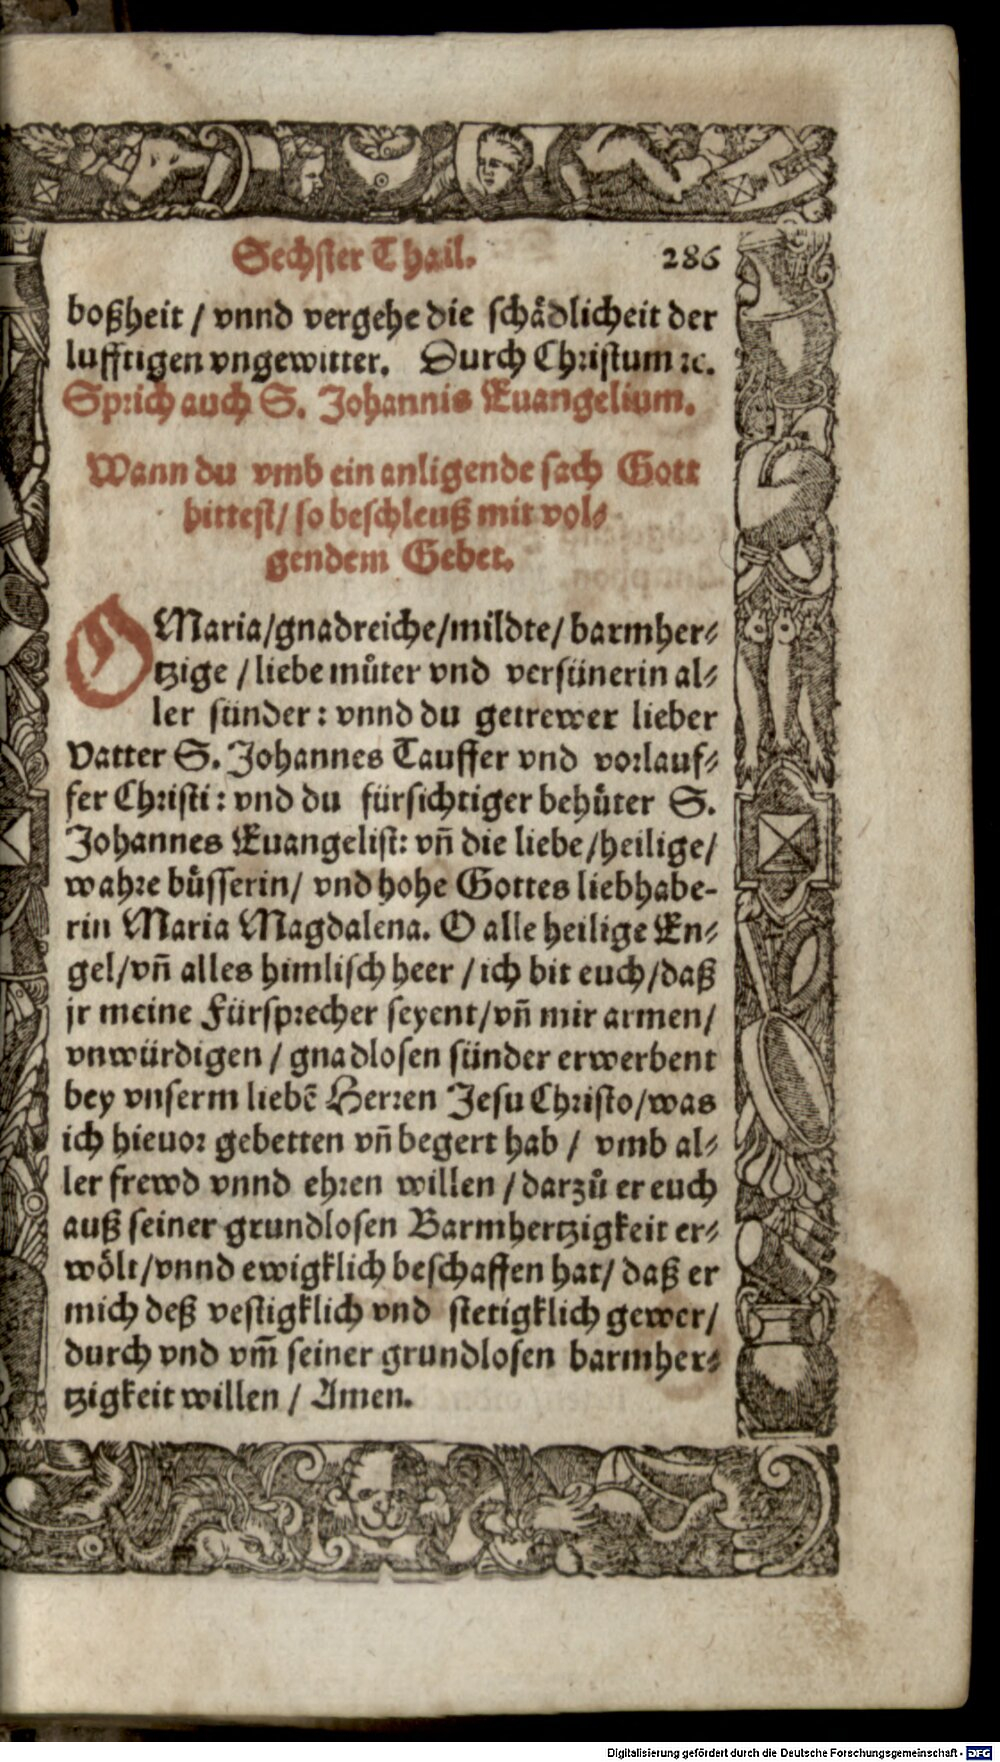 Sechster Thail. 286
boßheit / vnnd vergehe die schådlicheit der
lufftigen vngewitter. Durch Christum ꝛc.
Sprich auch S. Johannis Euangelium.
Wann du vmb ein anligende sach Gott
bittest/ so beschleuß mit vol⸗
gendem Gebet.
O Maria/gnadreiche/mildte/ barmher⸗
tzige / liebe můter vnd versünerin al⸗
ler sünder: vnnd du getrewer lieber
Vatter S. Johannes Tauffer vnd vorlauf⸗
fer Christi: vnd du fürsichtiger behüter S.
Johannes Euangelist: vn̄ die liebe/heilige/
wahre büsserin/ vnd hohe Gottes liebhabe-
rin Maria Magdalena. O alle heilige En⸗
gel/vn̄ alles himlisch heer / ich bit euch/daß
jr meine Fürsprecher seyent/vn̄ mir armen/
vnwürdigen / gnadlosen sünder erwerbent
bey vnserm liebē Herren Jesu Christo/was
ich hieuor gebetten vn̄ begert hab / vmb al⸗
ler frewd vnnd ehren willen / darzů er euch
auß seiner grundlosen Barmhertzigkeit er⸗
wölt/vnnd ewigklich beschaffen hat/ daß er
mich deß vestigklich vnd stetigklich gewer/
durch vnd vm̄ seiner grundlosen barmher⸗
tzigkeit willen / Amen.
Digitalisierung gefördert durch die Deutsche Forschungsgemeinschaft - DFG